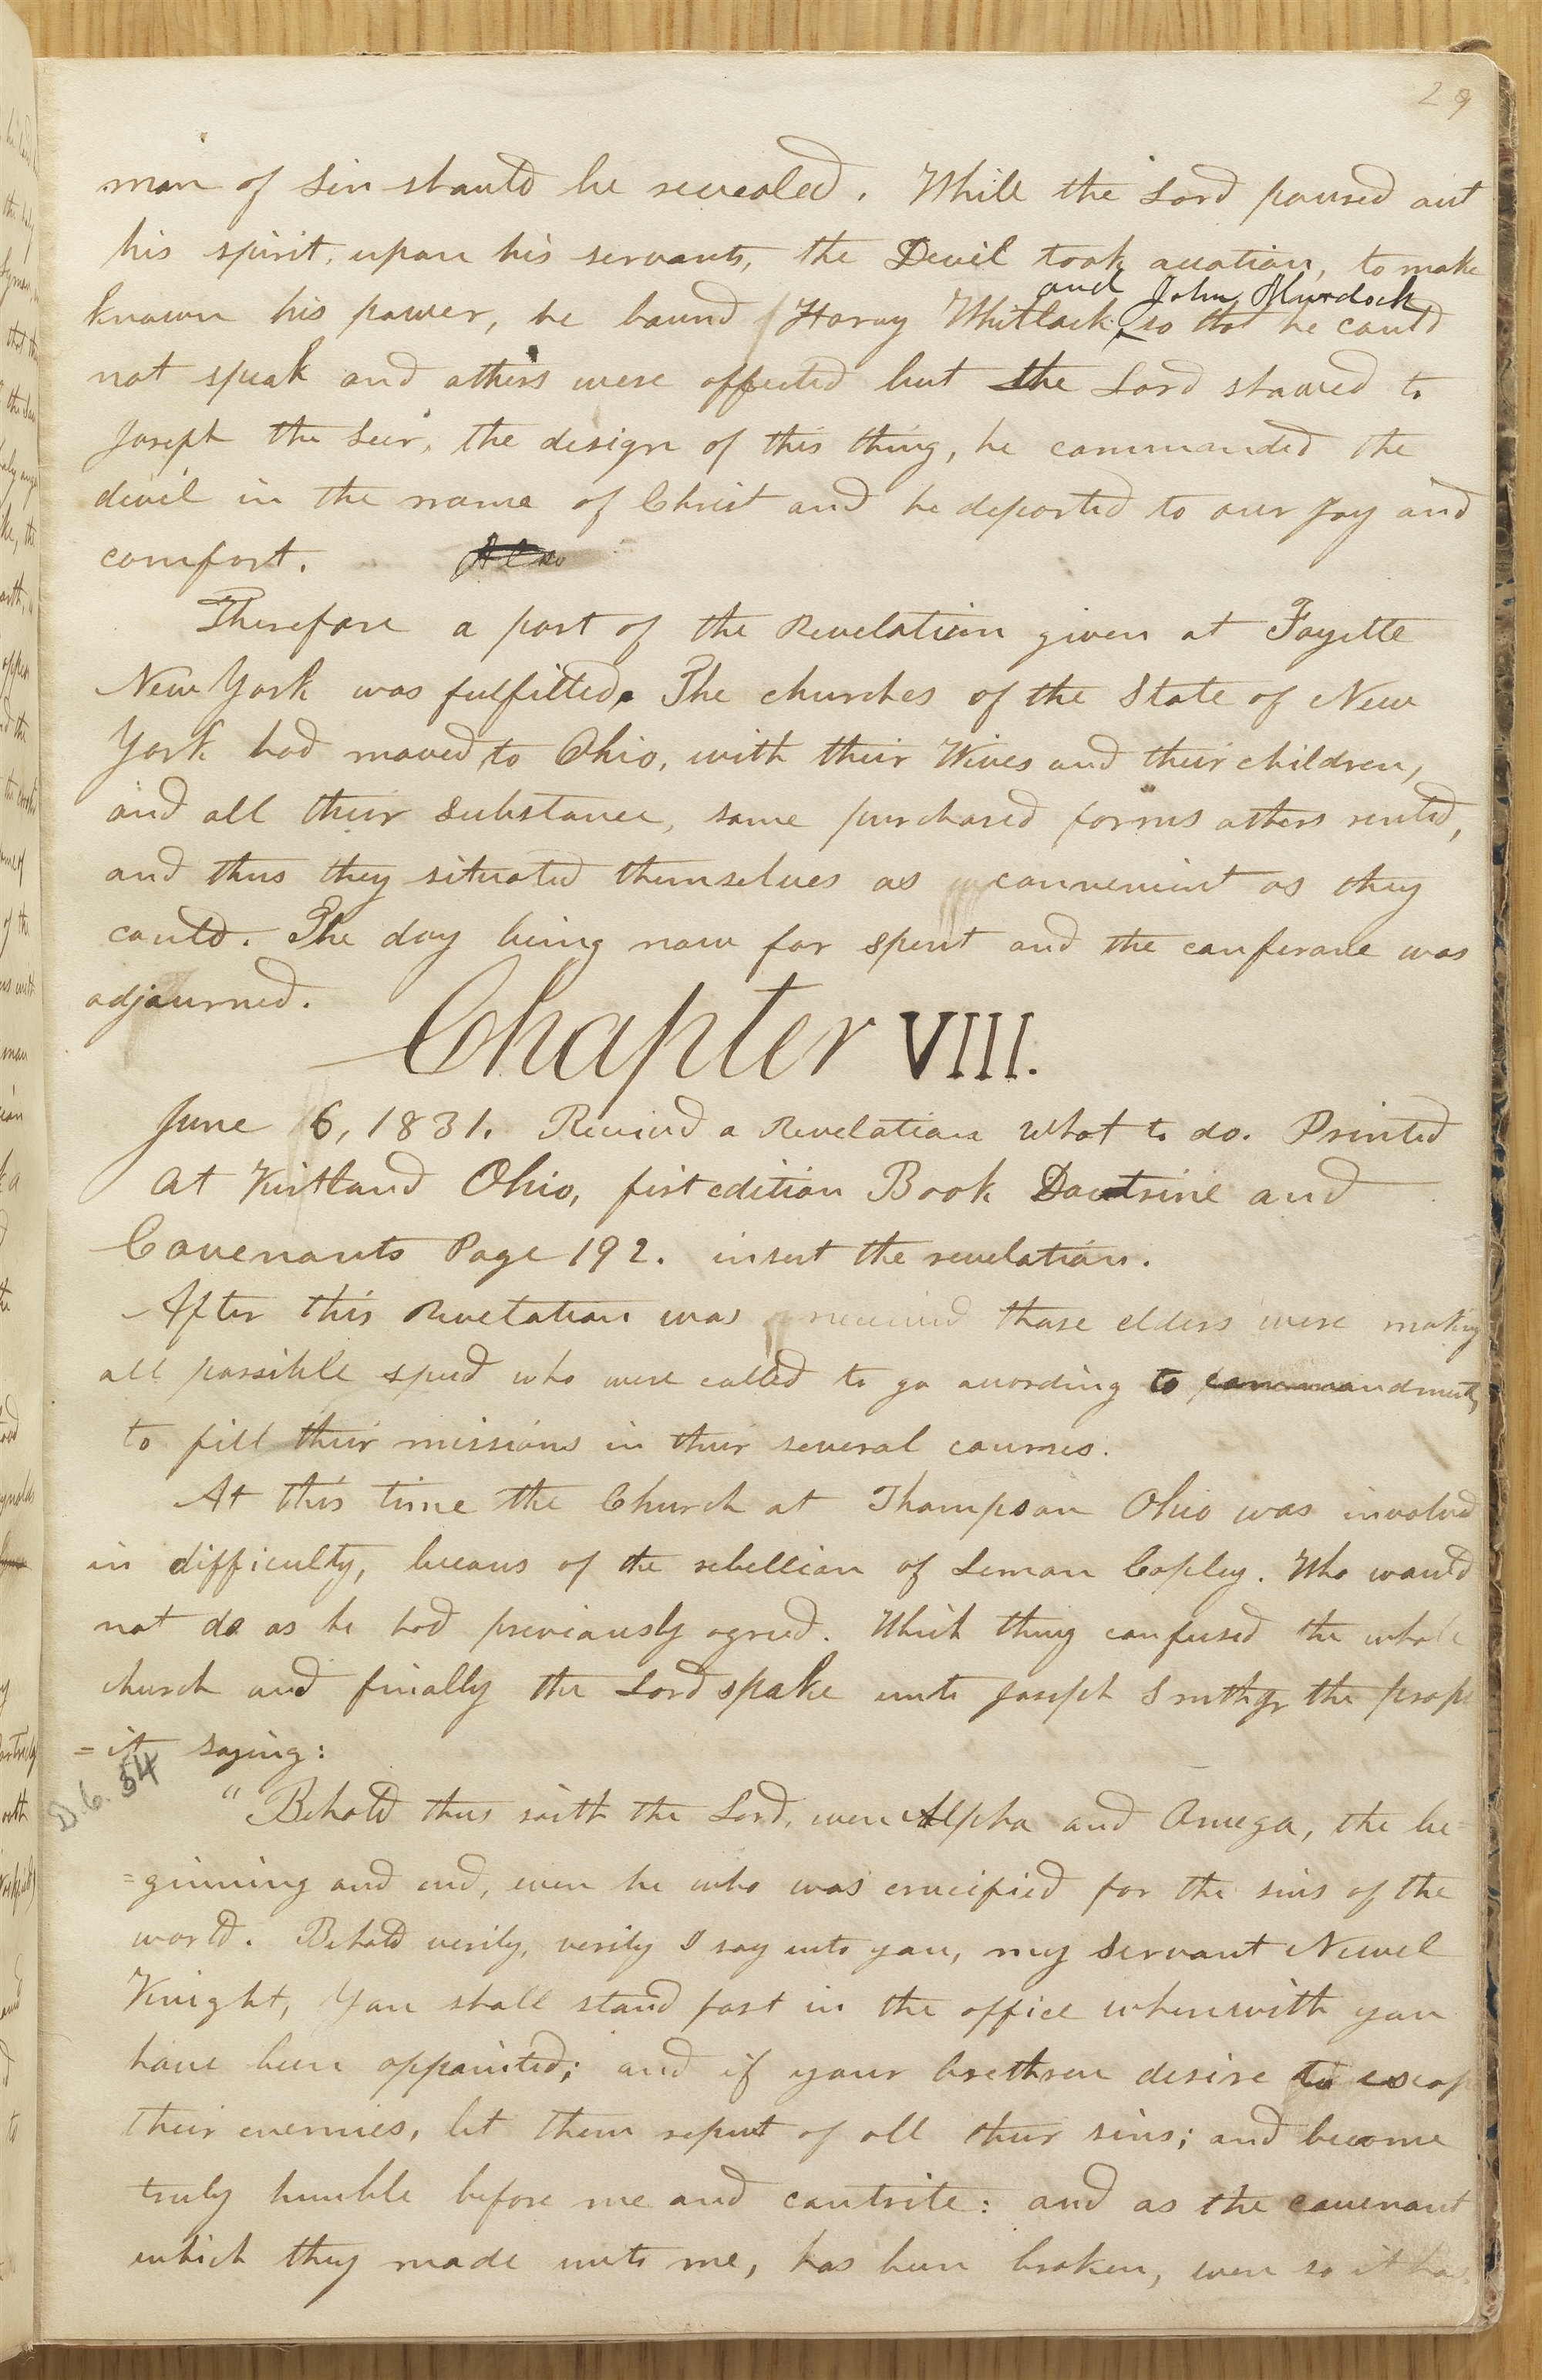 29
man of Sin should be revealed. While the Lord poured out
his spirit, upon his servants, the Devil took occation, to make
and John Murdock
known his power, he bound Harvy Whitlock so that he could
not speak and others were affected but the Lord showed to
Joseph the Seer, the design of this thing, he commanded the
devil in the name of Christ and he departed to our joy and
comfort. Also
Therefore a part of the Revelation given at Fayette
New York was fulfilled. The churches of the State of New
York had moved to Ohio, with their Wives and their children,
and all their substance, some purchased farms others rented,
and thus they situated themselves as convenient as they
could. The day being now far spent and the conferance was
adjourned.
Chapter VIII.
June 6, 1831. Received a Revelation what to do. Printed
at Kirtland Ohio, first edition Book Doctrine and
Covenants Page 192. insert the revelation.
After this Revelation was received those elders were making
all possible speed who were called to go according to commandments
to fill their missions in their several courses.
At this time the Church at Thompson Ohio was involved
in difficulty, because of the rebellion of Leman Copley. Who would
not do as he had previously agreed. Which thing confused the whole
church and finally the Lord spake unto Joseph Smith jr the proph
=it saying:
D. C. 54
"Behold thus saith the Lord, even Alpha and Omega, the be=
=ginning and end, even he who was crucified for the sins of the
world. Behold verily, verily I say unto you, my servant Newel
Knight, You shall stand fast in the office wherewith you
have been appointed; and if your brethren desire to escape
their enemies, let them repent of all their sins; and become
truly humble before me and contrite: and as the covenant
which they made unto me, has been broken, even so it has